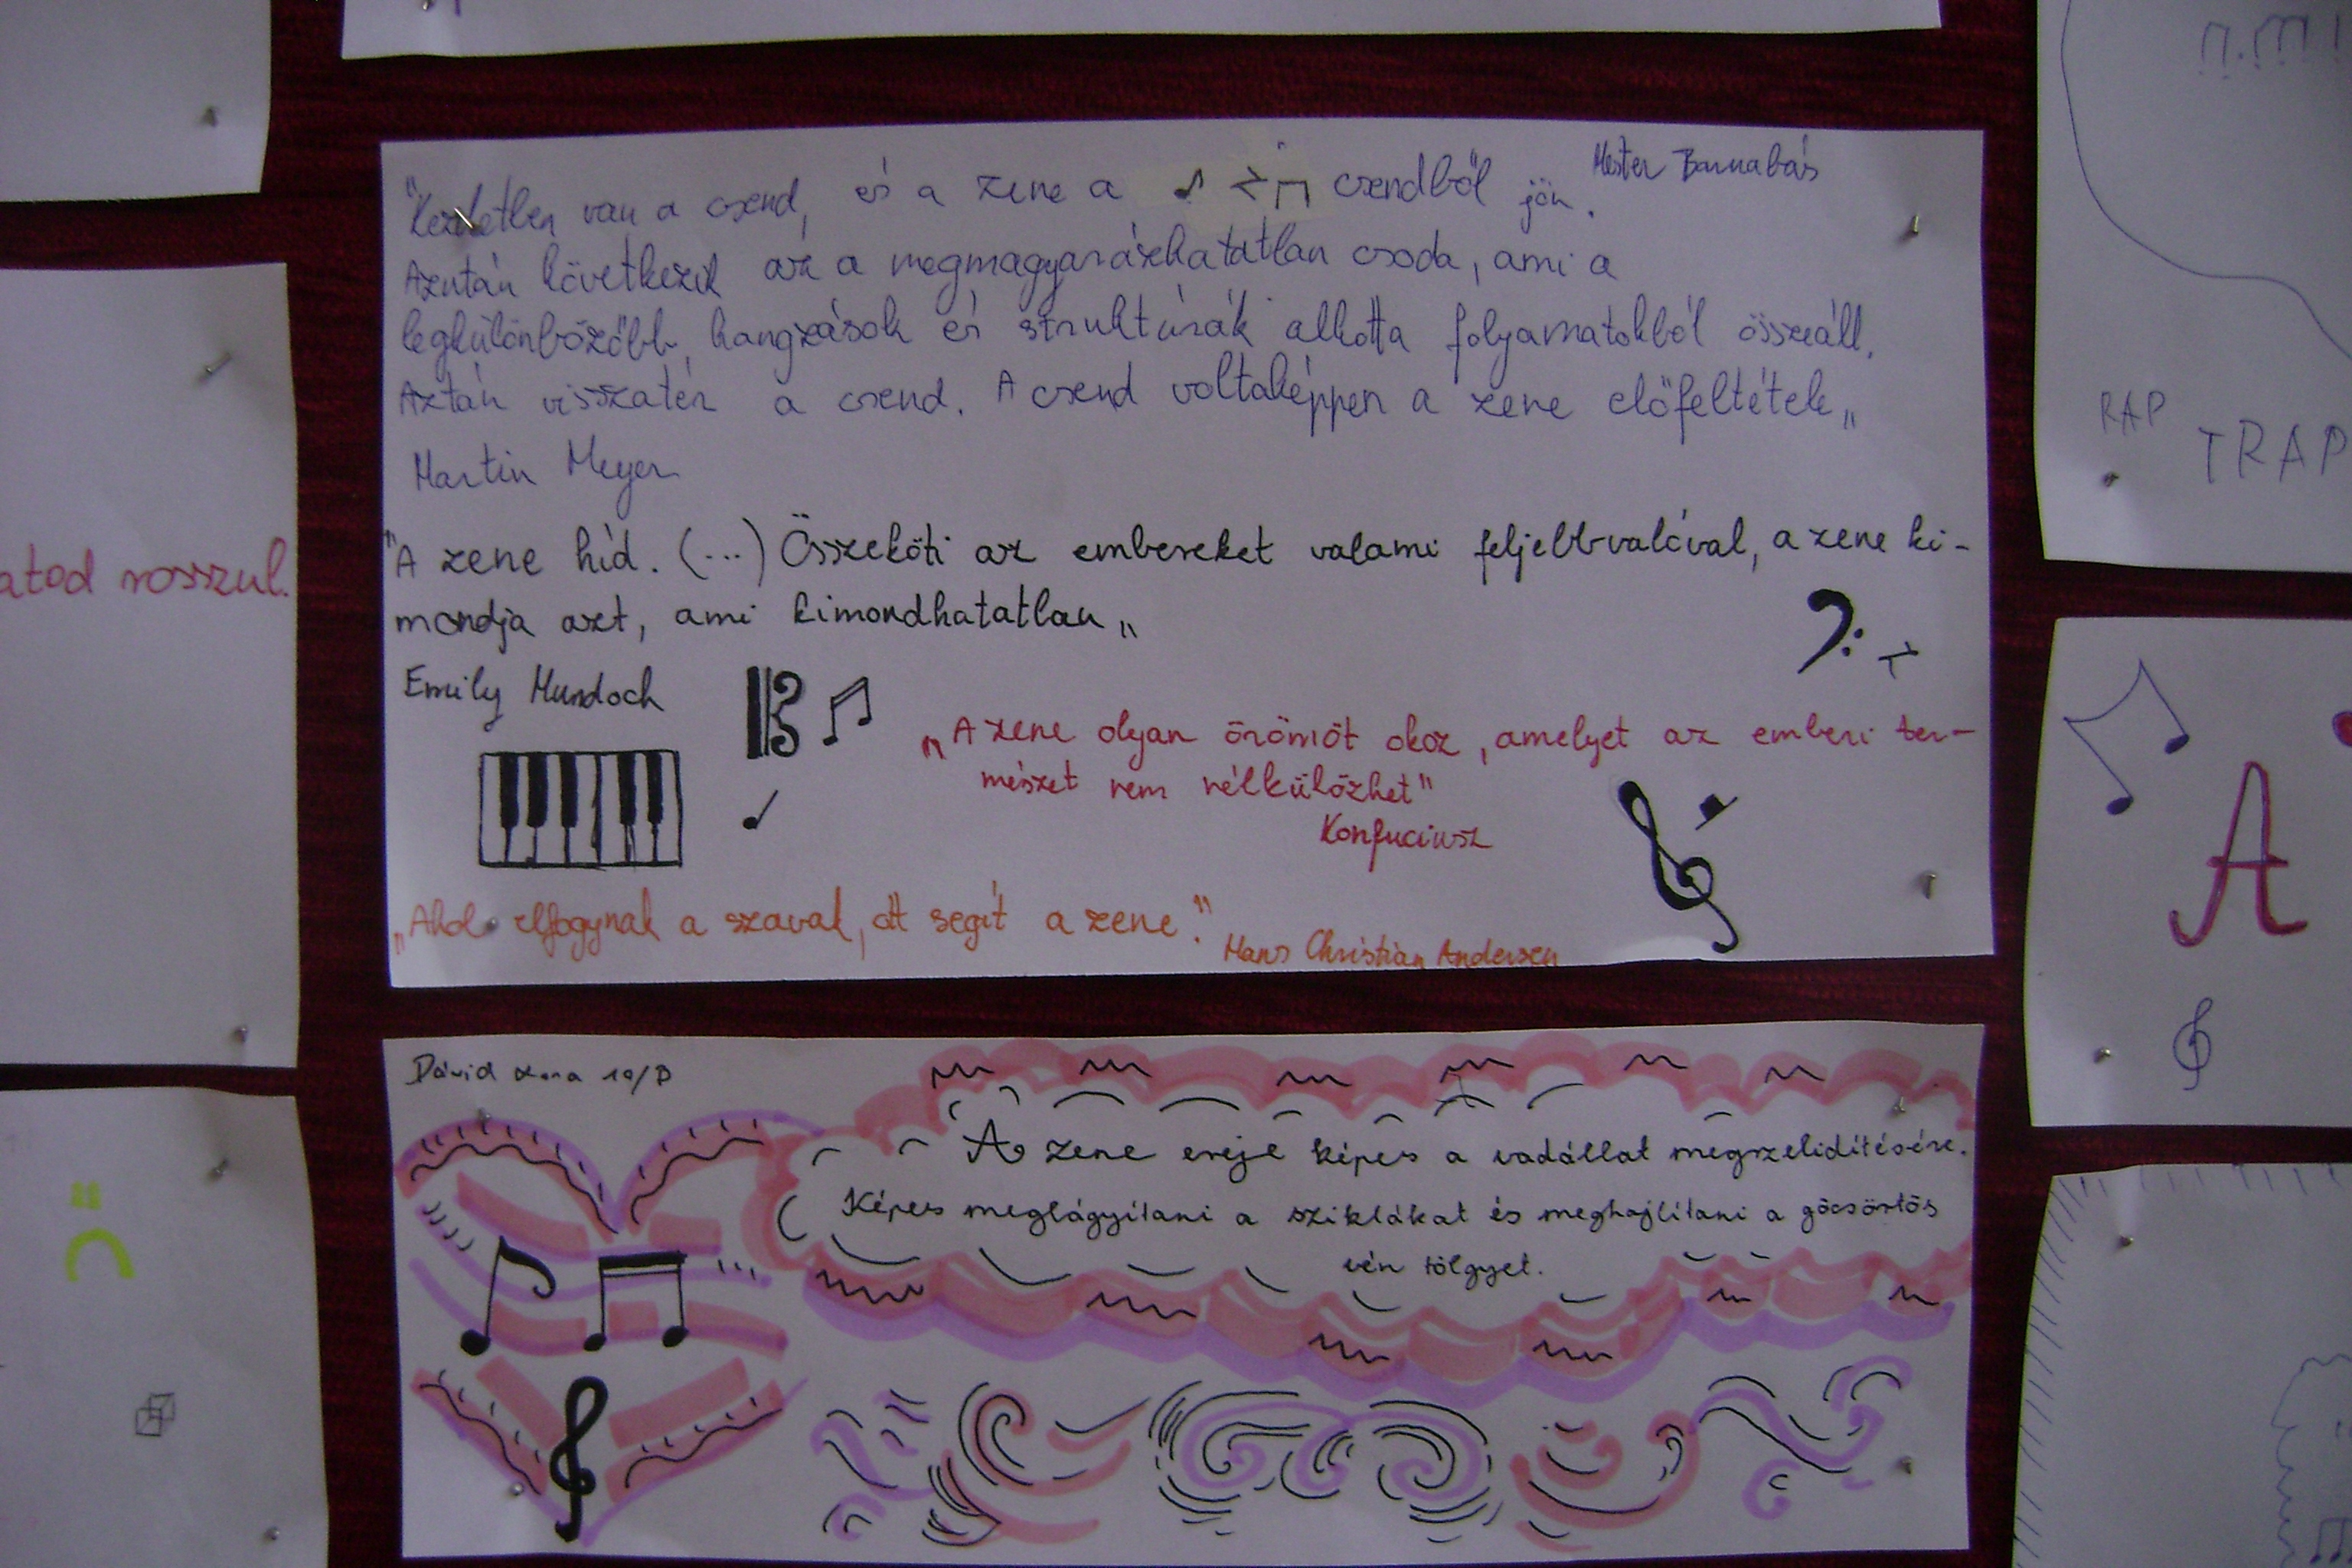 Mester Barnabás
"Kezdetben van a csend, és a zene a csendből jön.
Azután következik az a megmagyarázhatatlan csoda, ami a
legkülönbözőbb hangzások és struktúrák alkotta folyamatokból összeáll.
Aztán visszatér a csend. A csend voltaképpen a zene előfeltétele„
Martin Meyer
"A zene híd. (...) Összeköti az embereket valami feljebbvalóval, a zene ki-
mondja azt, ami kimondhatatlan„
Emily Murdoch
„A zene olyan örömöt okoz, amelyet az emberi ter-
mészet nem nélkülözhet"
Konfuciusz
„Ahol elfogynak a szavak, ott segít a zene."
Hans Christian Andersen
Dávid 10/B
A zene ereje képes a vadállat megszelidítésére.
Képes meglágyítani a sziklákat és meghajlítani a göcsörtös
vén tölgyet.
atod rosszul.
RAP
TRAP
A